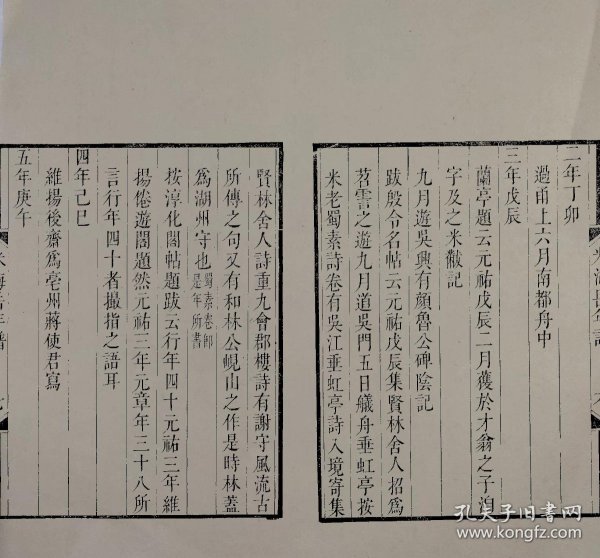 二年丁卯
過甬上六月南都舟中
三年戊辰
蘭亭題云元祐戊辰二月獲於才翁之子洎
字及之米黻記
九月遊吳興有顏魯公碑陰記
跋殷令名帖云元祐戊辰集賢林舍人招爲
苕霅之遊九月道吳門五日艤舟垂虹亭按
米老蜀素詩卷有吳江垂虹亭詩入境寄集
賢林舍人詩重九會郡樓詩有謝守風流古
所傳之句又有和林公峴山之作是時林蓋
爲湖州守也蜀素卷卽是年所書
按淳化閣帖題跋云行年四十元祐三年維
揚倦遊閣題然元祐三年元章年三十八所
言行年四十者撮指之語耳
四年己巳
維揚後齋爲亳州蔣使君寫
五年庚午
米海岳年譜
七
孔夫子旧书网
www.kongfz.com